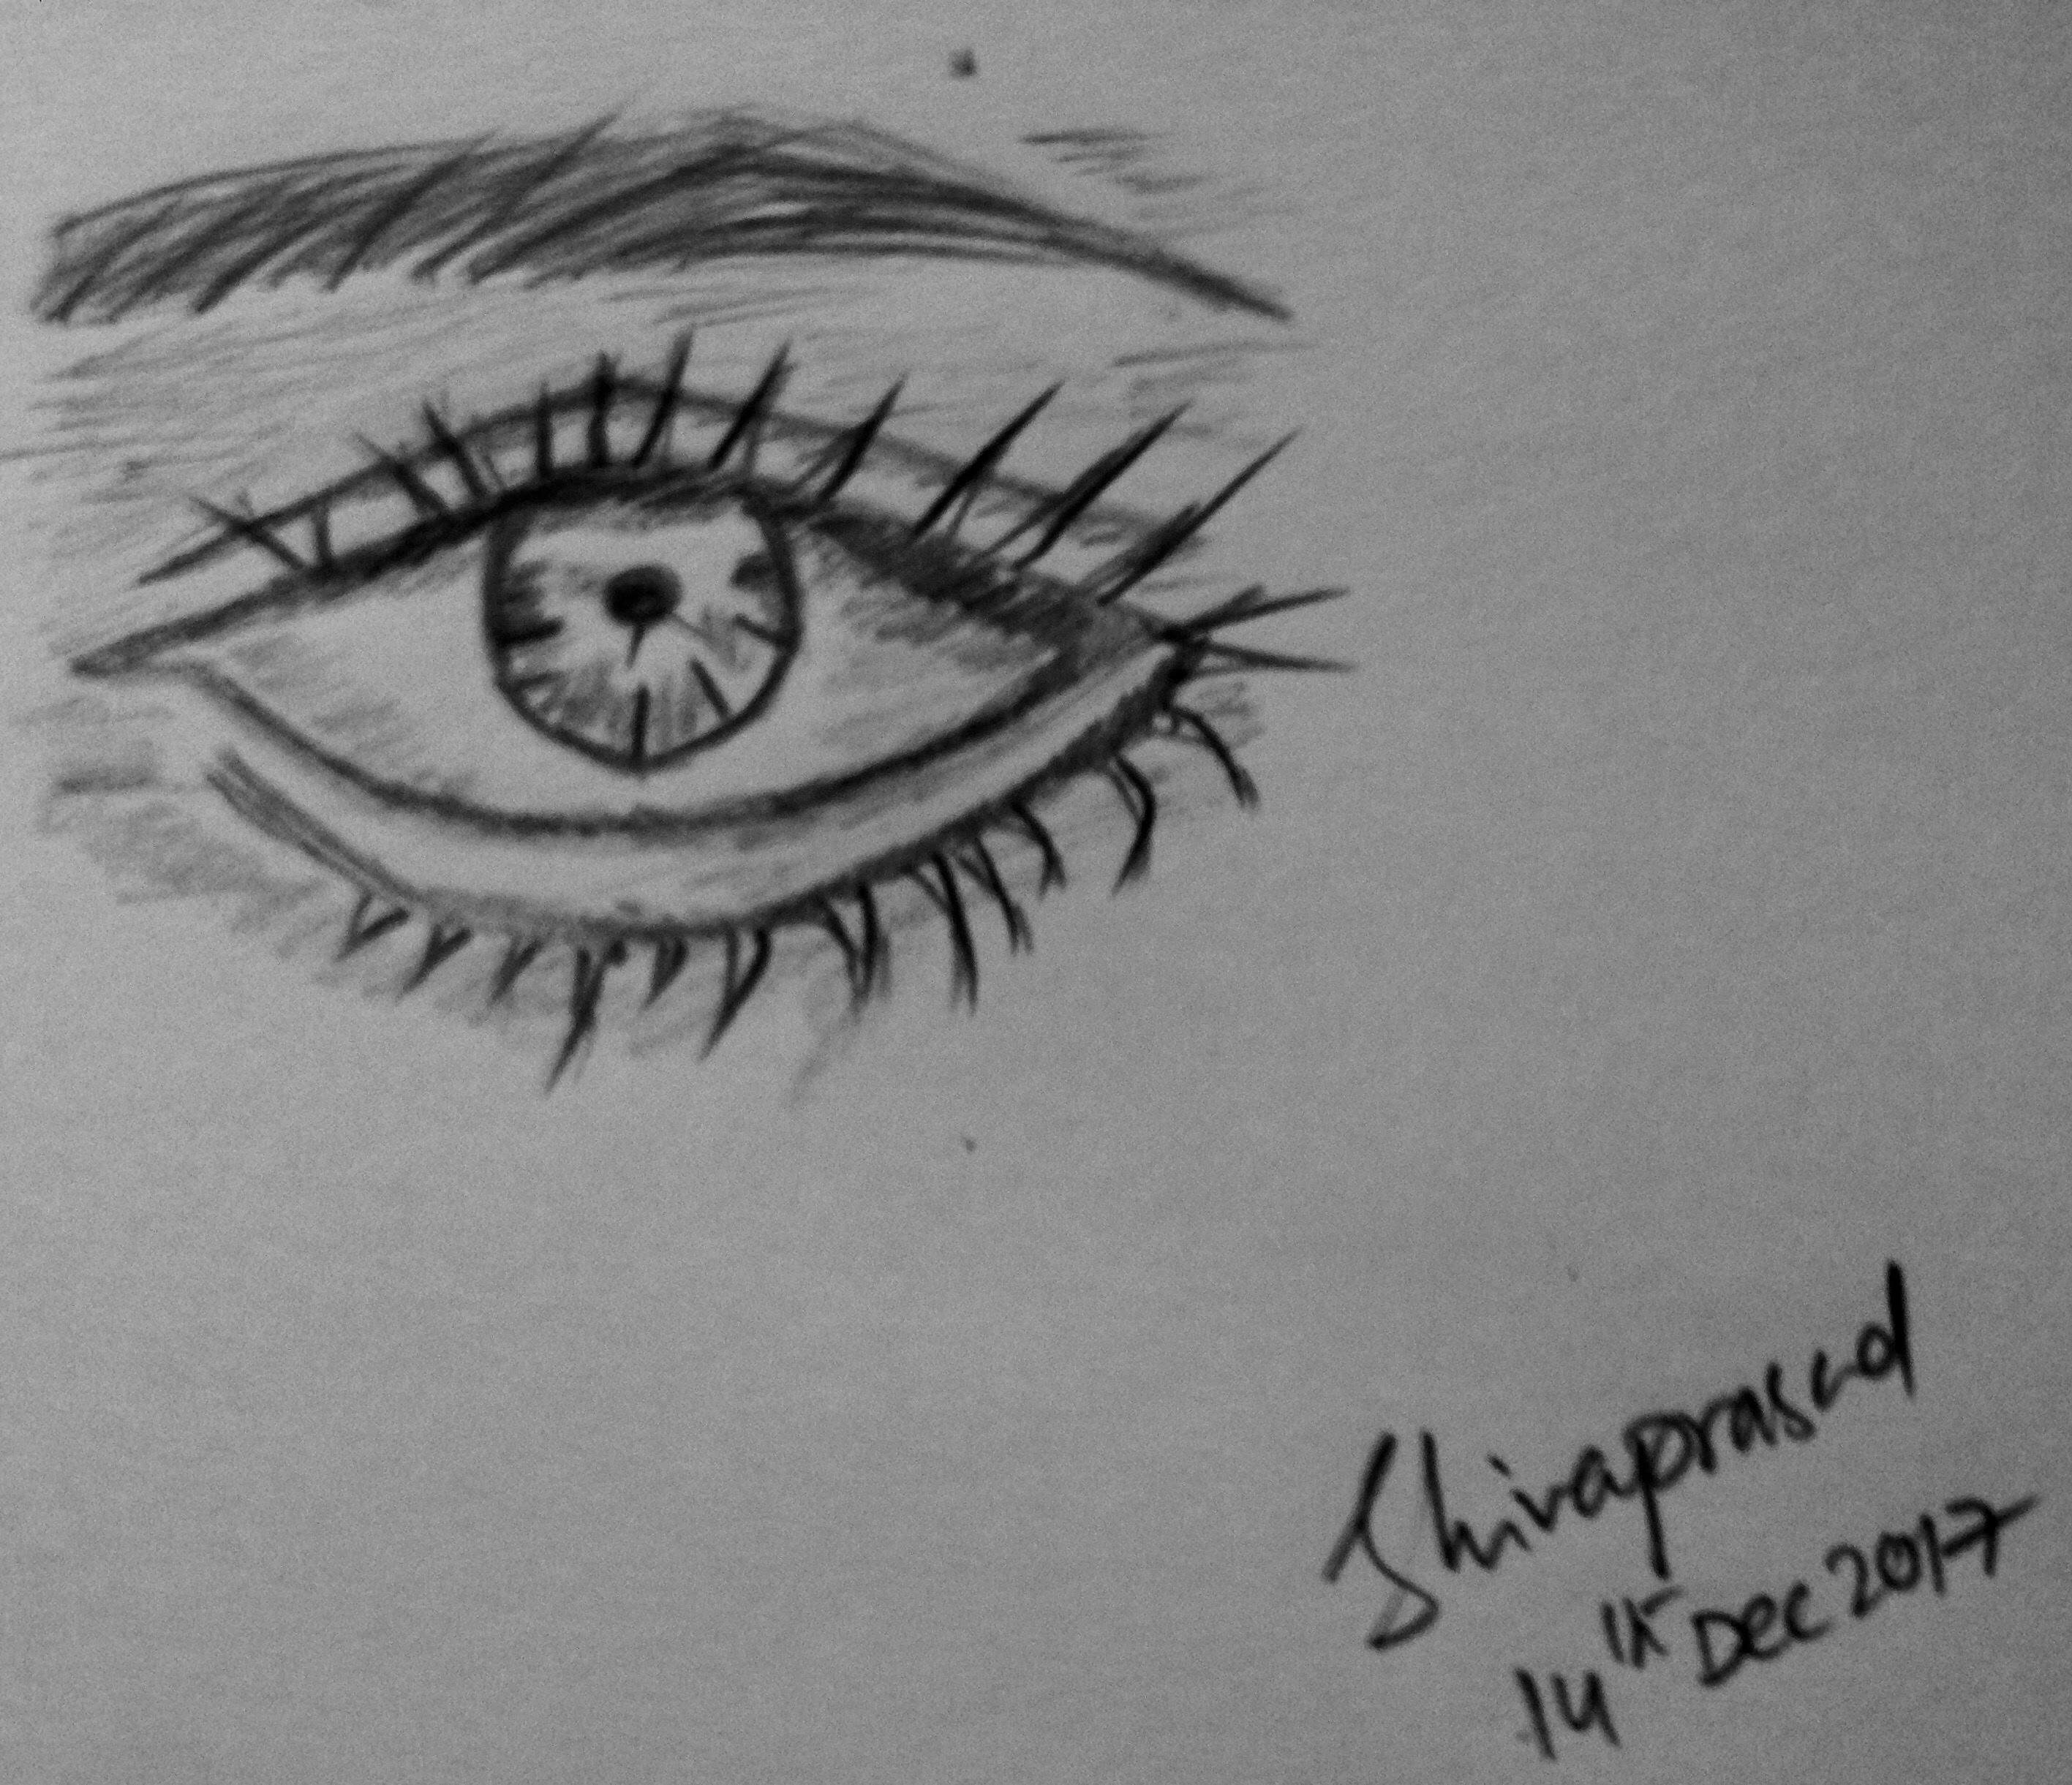 Shivaprasad
14th Dec 2017